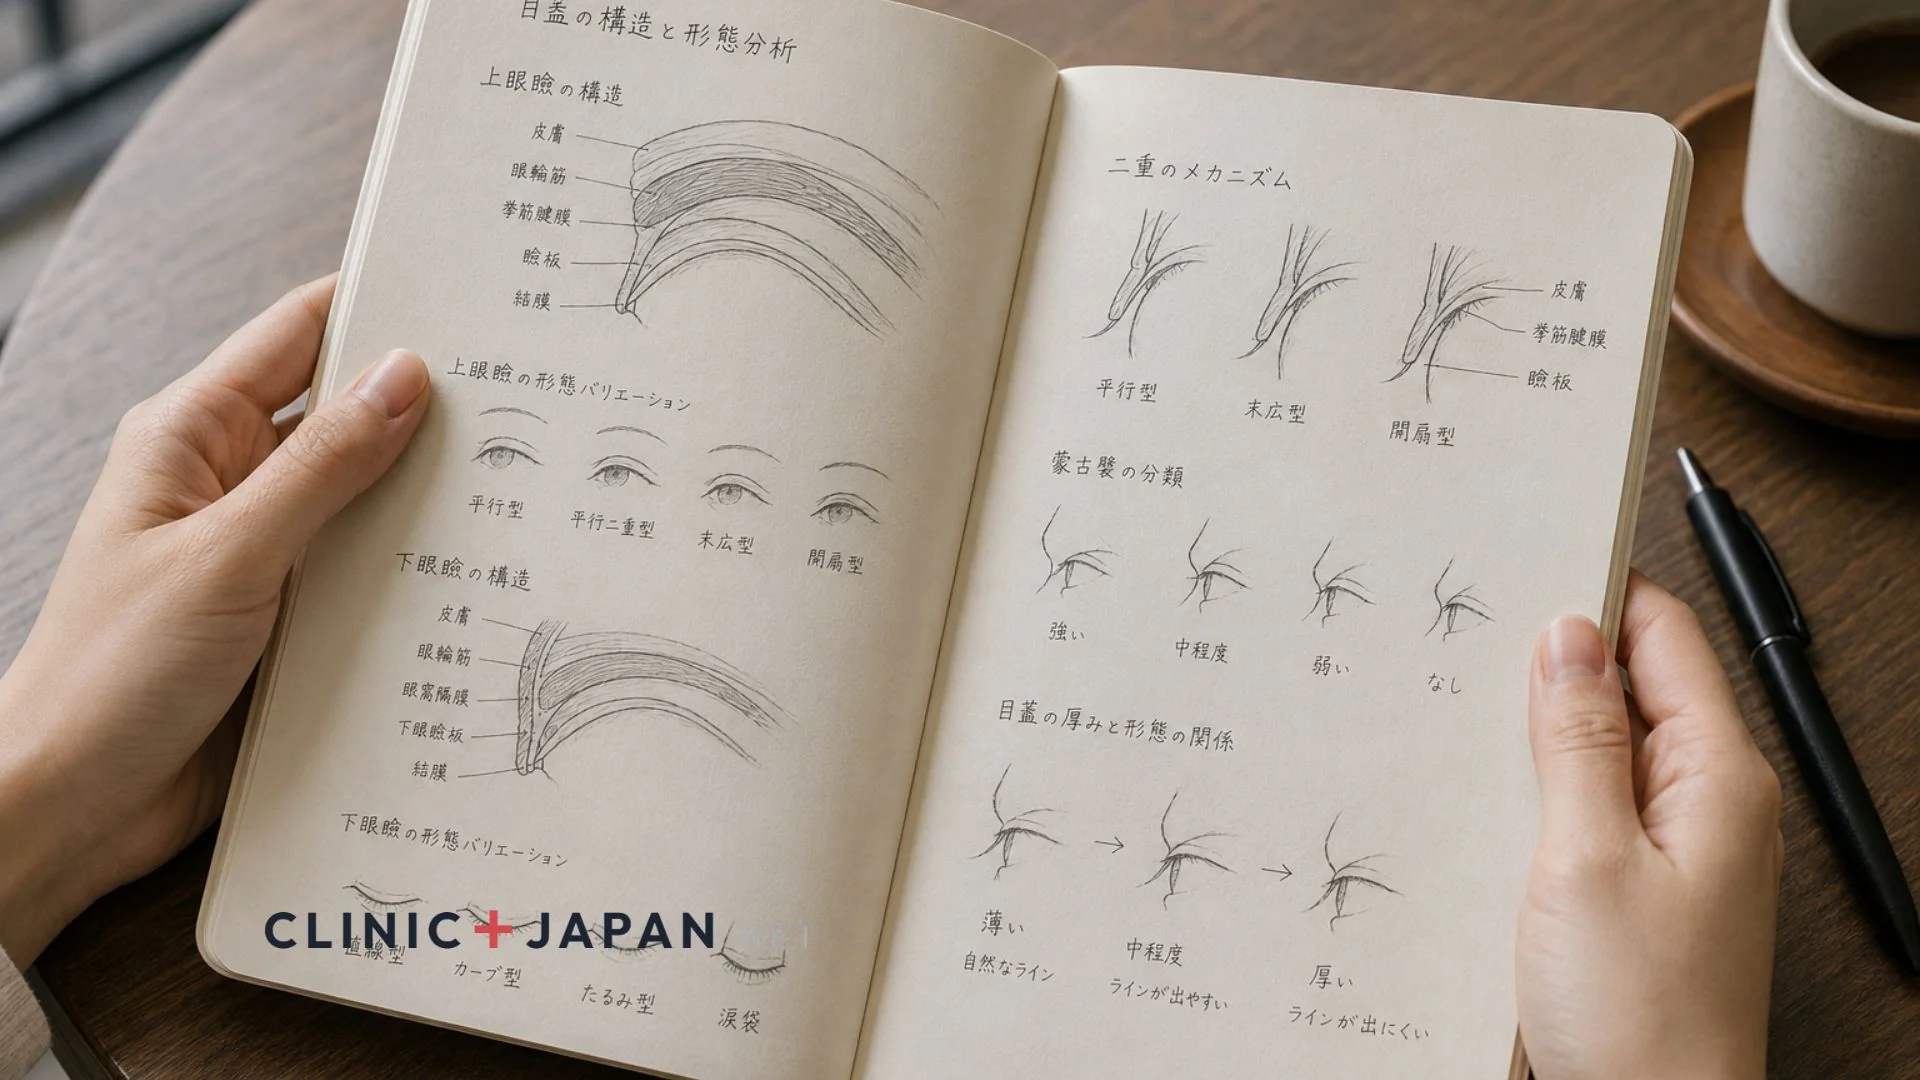 目盖の構造と形態分析
上眼瞼の構造
皮膚
眼輪筋
挙筋腱膜
瞼板
結膜
上眼瞼の形態バリエーション
平行型
平行二重型
末広型
開扇型
下眼瞼の構造
皮膚
眼輪筋
眼窩隔膜
下眼瞼板
結膜
下眼瞼の形態バリエーション
直線型
カーブ型
たるみ型
涙袋
二重のメカニズム
皮膚
挙筋腱膜
瞼板
平行型
末広型
開扇型
蒙古襞の分類
強い
中程度
弱い
なし
目蓋の厚みと形態の関係
薄い
自然なライン
中程度
ラインが出やすい
厚い
ラインが出にくい
CLINIC+JAPAN.NET